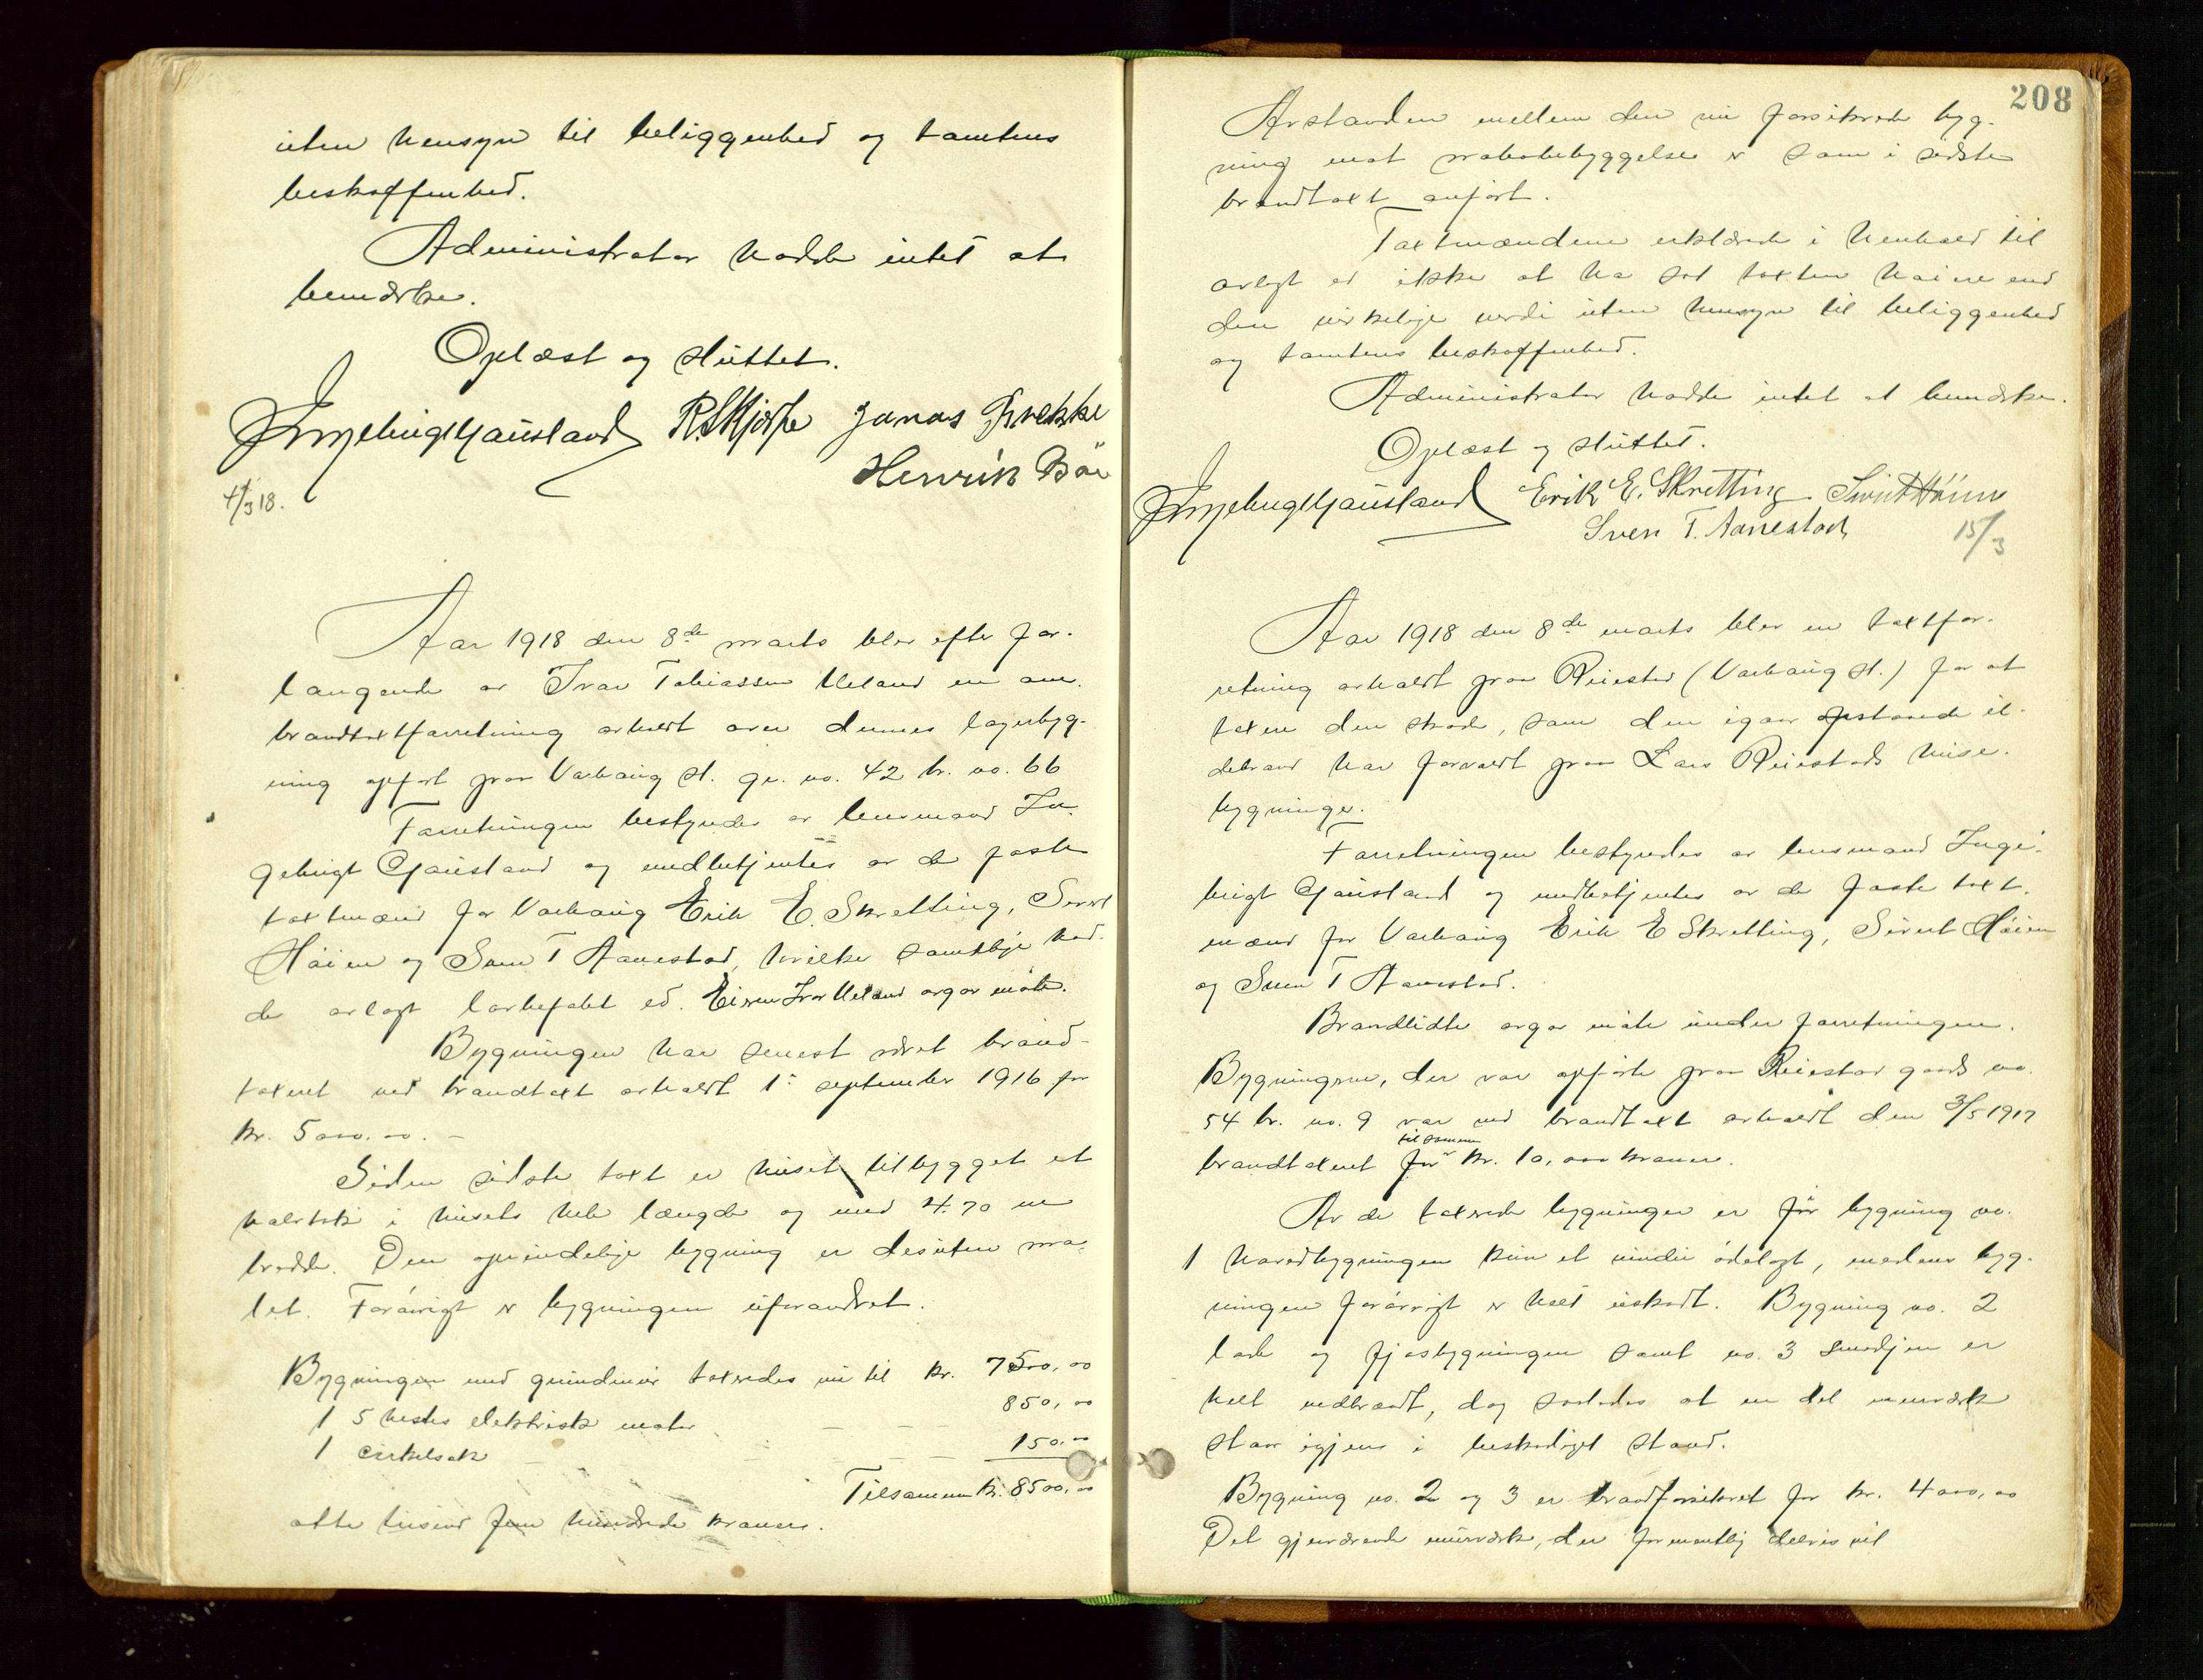 uten hensyn til beliggenhed og tomtens
beskaffenhed.
Administrator hadde intet at
bemærke.
Oplæst og sluttet.
Ingebrigt Gausland R. Skjorpe Jonas Brekke
Henrik Bø
4/3 18.
Aar 1918 den 8de marts blev efter for-
langende av Ivar Tobiassen Ueland en om-
brandtaxtforretning avholdt over dennes lagerbyg-
ning opført paa Varhaug st. gr. no. 42 br. no. 66
Forretningen bestyredes av lensmand In-
gebrigt Gausland og medbetjentes av de faste
taxtmænd for Varhaug Erik E. Skretting, Sivert
Høien og Sven T Aanestad, hvilke samtlige had-
de avlagt lovbefalet ed. Eieren Ivar Ueland avgav møte.
Bygningen har senest været brand-
taxeret ved brandtaxt avholdt 1ste september 1916 for
kr. 5000.00. -
Siden sidste taxt er huset tilbygget et
halvtak i husets hele længde og med 4.70 m
bredde. Den oprindelige bygning er desuten ma-
let. Forøvrigt er bygningen uforandret.
Bygningen med grundmur taxeredes nu til kr. 7500,00
1 5 hestes elektrisk motor — — 850,00
1 cirkelsak — — — 150,00
Tilsammen kr. 8500,00
otte tusind fem hundrede kroner.
208
Avstanden mellem den nu forsikrede byg-
ning mot nabobebyggelse er som i sidste
brandtaxt anført.
Taxtmændene erklærede i henhold til
avlagt ed ikke at ha sat taxten høiere end
den virkelige verdi uten hensyn til beliggenhed
og tomtens beskaffenhed.
Administrator hadde intet at bemærke.
Oplæst og sluttet.
Ingebrigt Gausland Erik E. Skretting Sivert Høien
Sven T. Aanestad
15/3
Aar 1918 den 8de marts blev en taxtfor-
retning avholdt paa Reiestad (Varhaug st.) for at
taxere den skade, som den igaar opstaaede il-
debrand har forvoldt paa Lars Reiestads huse-
bygninger.
Forretningen bestyredes av lensmand Inge-
brigt Gausland og medbetjentes av de faste taxt-
mænd for Varhaug Erik E Skretting, Sivert Høien
og Sven T Aanestad.
Brandlidte avgav møte under forretningen.
Bygningerne, der var opførte paa Reiestad gaards no.
54 br. no. 9 var ved brandtaxt avholdt den 3/5 1917
tilsammen
brandtaxeret for kr. 10,000 kroner.
Av de taxerede bygninger er for bygning no.
1 hovedbygningen kun et vindu ødelagt, medens byg-
ningen forøvrigt er helt uskadt. Bygning no. 2
lade og fjøsbygningen samt no. 3 smedjen er
helt nedbrændt, dog saaledes at en del murværk
staar igjen i beskadiget stand.
Bygning no. 2 og 3 er brandforsikret for kr. 4000,00
Det gjenværende murværk, der formentlig delvis vil